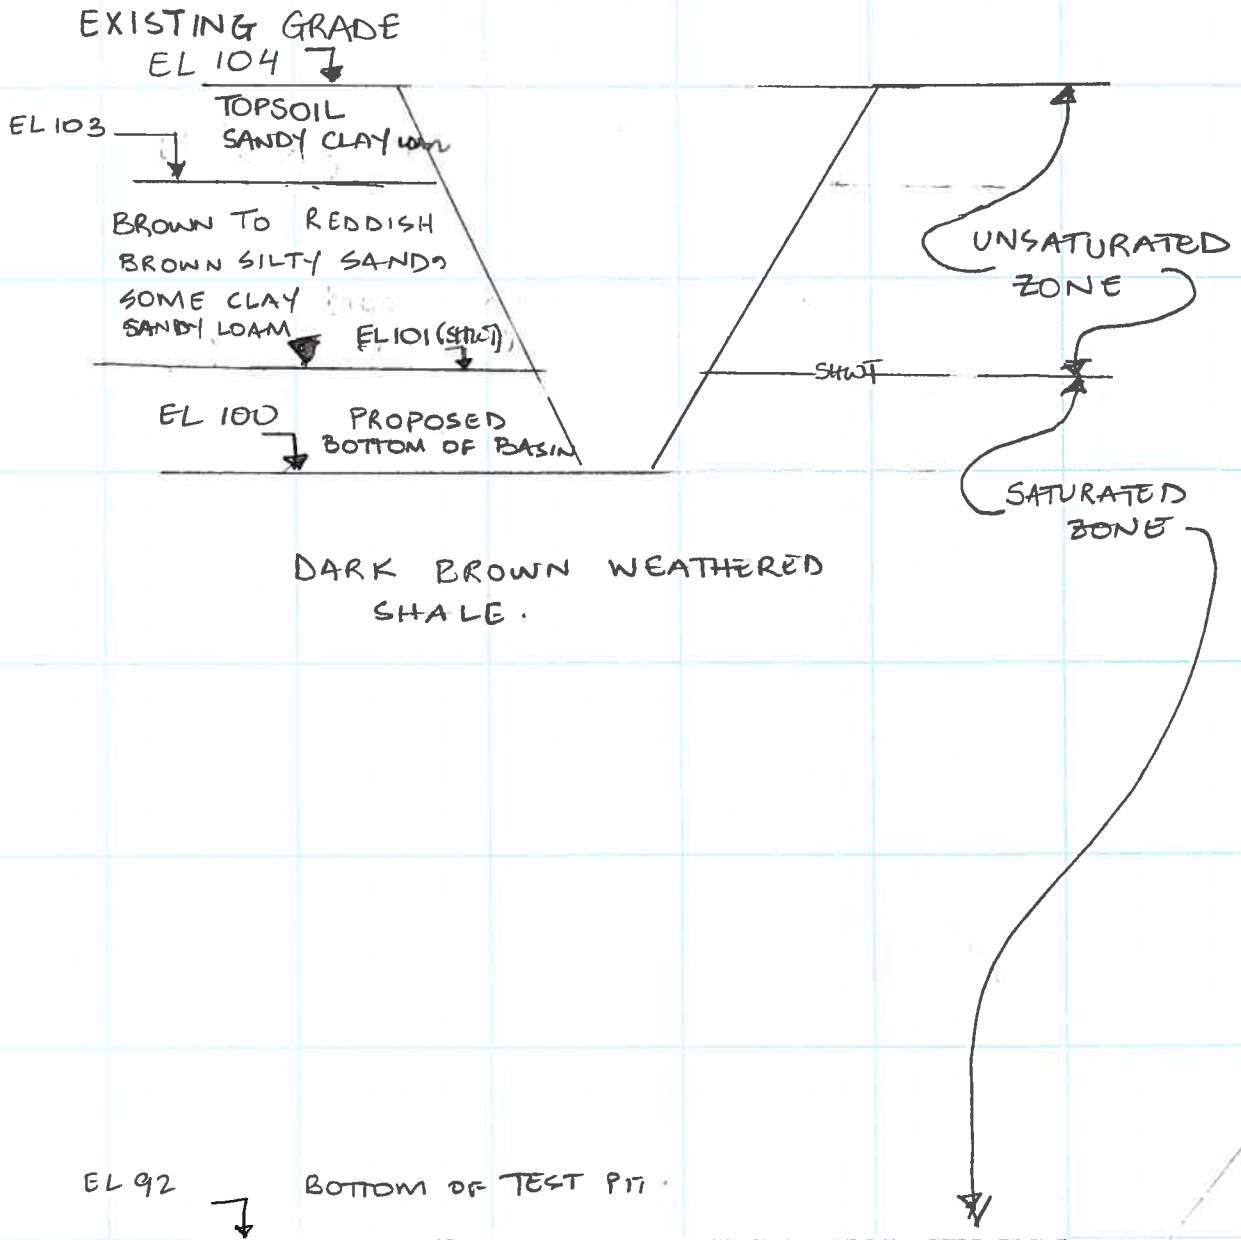 EXISTING GRADE
EL 104
TOPSOIL
SANDY CLAY loam
EL 103
BROWN TO REDDISH
BROWN SILTY SANDS
SOME CLAY
SANDY LOAM
EL 101 (SHWT)
EL 100
PROPOSED
BOTTOM OF BASIN
UNSATURATED
ZONE
SHWT
SATURATED
ZONE
DARK BROWN WEATHERED
SHALE.
EL 92
BOTTOM OF TEST PIT.